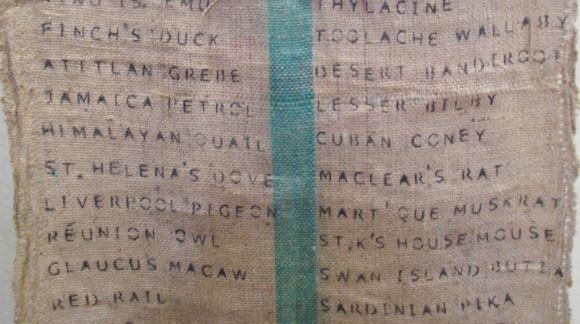 KING IS. EMU
FINCH'S DUCK
ATITLAN GREBE
JAMAICA PETREL
HIMALAYAN QUAIL
ST. HELENA'S DOVE
LIVERPOOL PIGEON
RÉUNION OWL
GLAUCUS MACAW
RED RAIL
THYLACINE
TOOLACHE WALLABY
DESERT BANDICOOT
LESSER BILBY
CUBAN CONEY
MACLEAR'S RAT
MART'QUE MUSKRAT
ST.K'S HOUSE MOUSE
SWAN ISLAND HUTIA
SARDINIAN PIKA